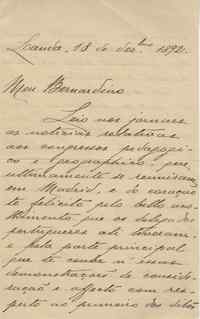 Loanda, 18 de dez.bro 1892.
Meu Bernardino
Leio nos jornaes
as noticias relativas
aos congressos pedagogi-
co e geographico, que
ultimamente se reuniram
em Madrid, e de coração
te felicito pelo bello aco-
lhimento que os delegados
portugueses ali tiveram
e pela parte principal
que te coube n'essas
demonstrações de conside-
ração e affecto com res-
peito ao primeiro dos